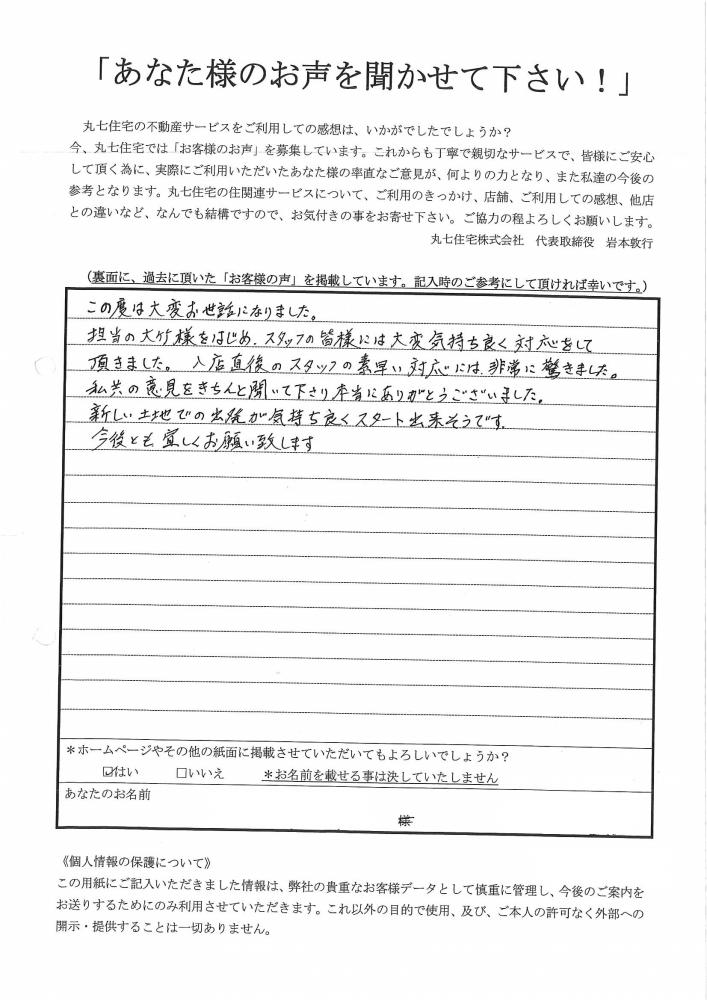 「あなた様のお声を聞かせて下さい！」
丸七住宅の不動産サービスをご利用しての感想は、いかがでしたでしょうか？
今、丸七住宅では「お客様のお声」を募集しています。これからも丁寧で親切なサービスで、皆様にご安心
して頂く為に、実際にご利用いただいたあなた様の率直なご意見が、何よりの力となり、また私達の今後の
参考となります。丸七住宅の住関連サービスについて、ご利用のきっかけ、店舗、ご利用しての感想、他店
との違いなど、なんでも結構ですので、お気付きの事をお寄せ下さい。ご協力の程よろしくお願いします。
丸七住宅株式会社　代表取締役　岩本敦行
（裏面に、過去に頂いた「お客様の声」を掲載しています。記入時のご参考にして頂ければ幸いです。）
この度は大変お世話になりました。
担当の大竹様をはじめ、スタッフの皆様には大変気持ち良く対応をして
頂きました。入店直後のスタッフの素早い対応には、非常に驚きました。
私共の意見をきちんと聞いて下さり本当にありがとうございました。
新しい土地での出発が気持ち良くスタート出来そうです。
今後とも宜しくお願い致します
＊ホームページやその他の紙面に掲載させていただいてもよろしいでしょうか？
☑はい　□いいえ　＊お名前を載せる事は決していたしません
あなたのお名前
様
《個人情報の保護について》
この用紙にご記入いただきました情報は、弊社の貴重なお客様データとして慎重に管理し、今後のご案内を
お送りするためにのみ利用させていただきます。これ以外の目的で使用、及び、ご本人の許可なく外部への
開示・提供することは一切ありません。